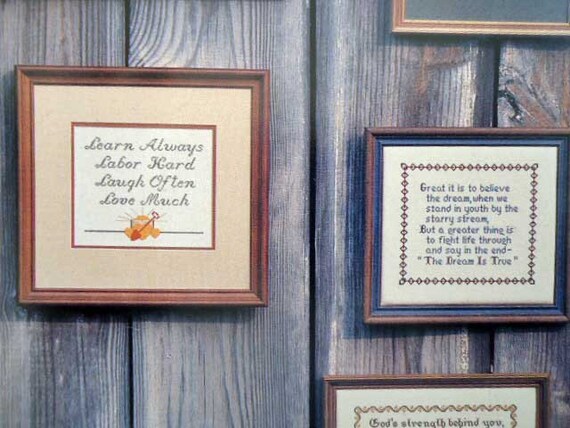 Learn Always
Labor Hard
Laugh Often
Love Much
Great it is to believe
the dream, when we
stand in youth by the
starry stream,
But a greater thing is
to fight life through
and say in the end-
"The Dream Is True"
God's strength behind you,